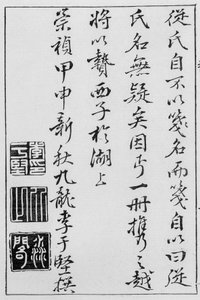 從氏自不以箋名而箋自以曰從
氏名無疑矣因弓一冊攜之越
將以贄西子於湖上
崇禎甲申新秋九龍李于堅撰